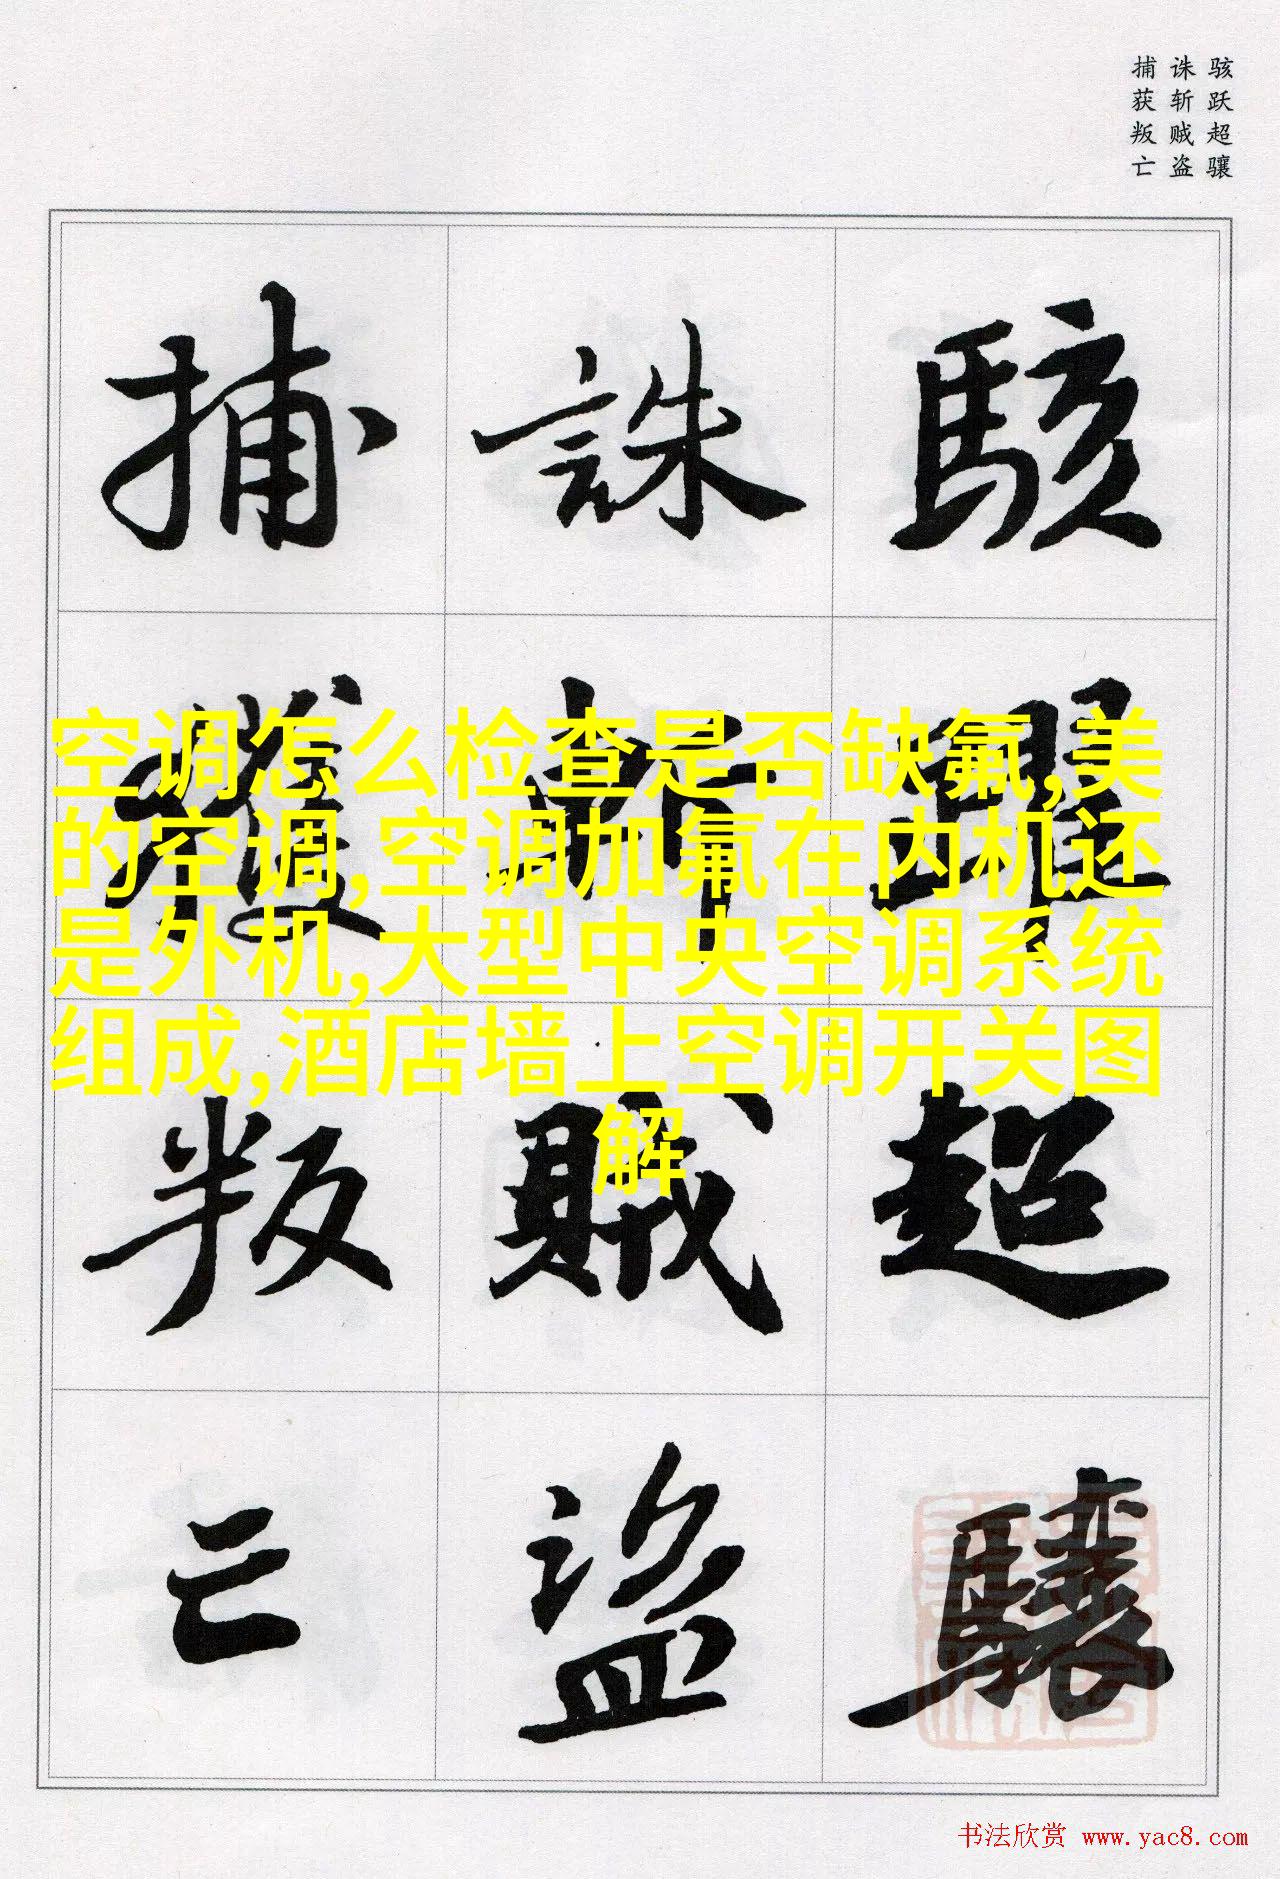 骇跃超骧
诛斩贼盗
捕获叛亡
駭躍超驤
誅斬賊盜
捕獲叛亡
空调怎么检查是否缺氟,美
的空调,空调加氟在内机还
是外机,大型中央空调系统
组成,酒店墙上空调开关图
解
书法欣赏 www.yac8.com